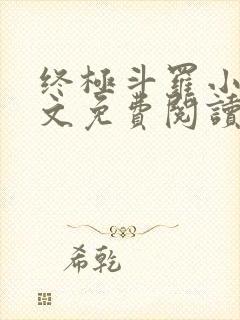 终極斗羅小
文免費閱讀
希乾